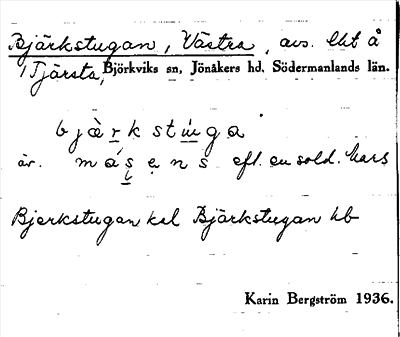 Bjärkstugan, Västra, avs. lht å
Tjärsta, Björkviks sn, Jönåkers hd, Södermanlands län.
bjàrkstuga
äv. másens eft. en sold. Mars
Bjerkstugan kal Bjärkstugan hb
Karin Bergström 1936.